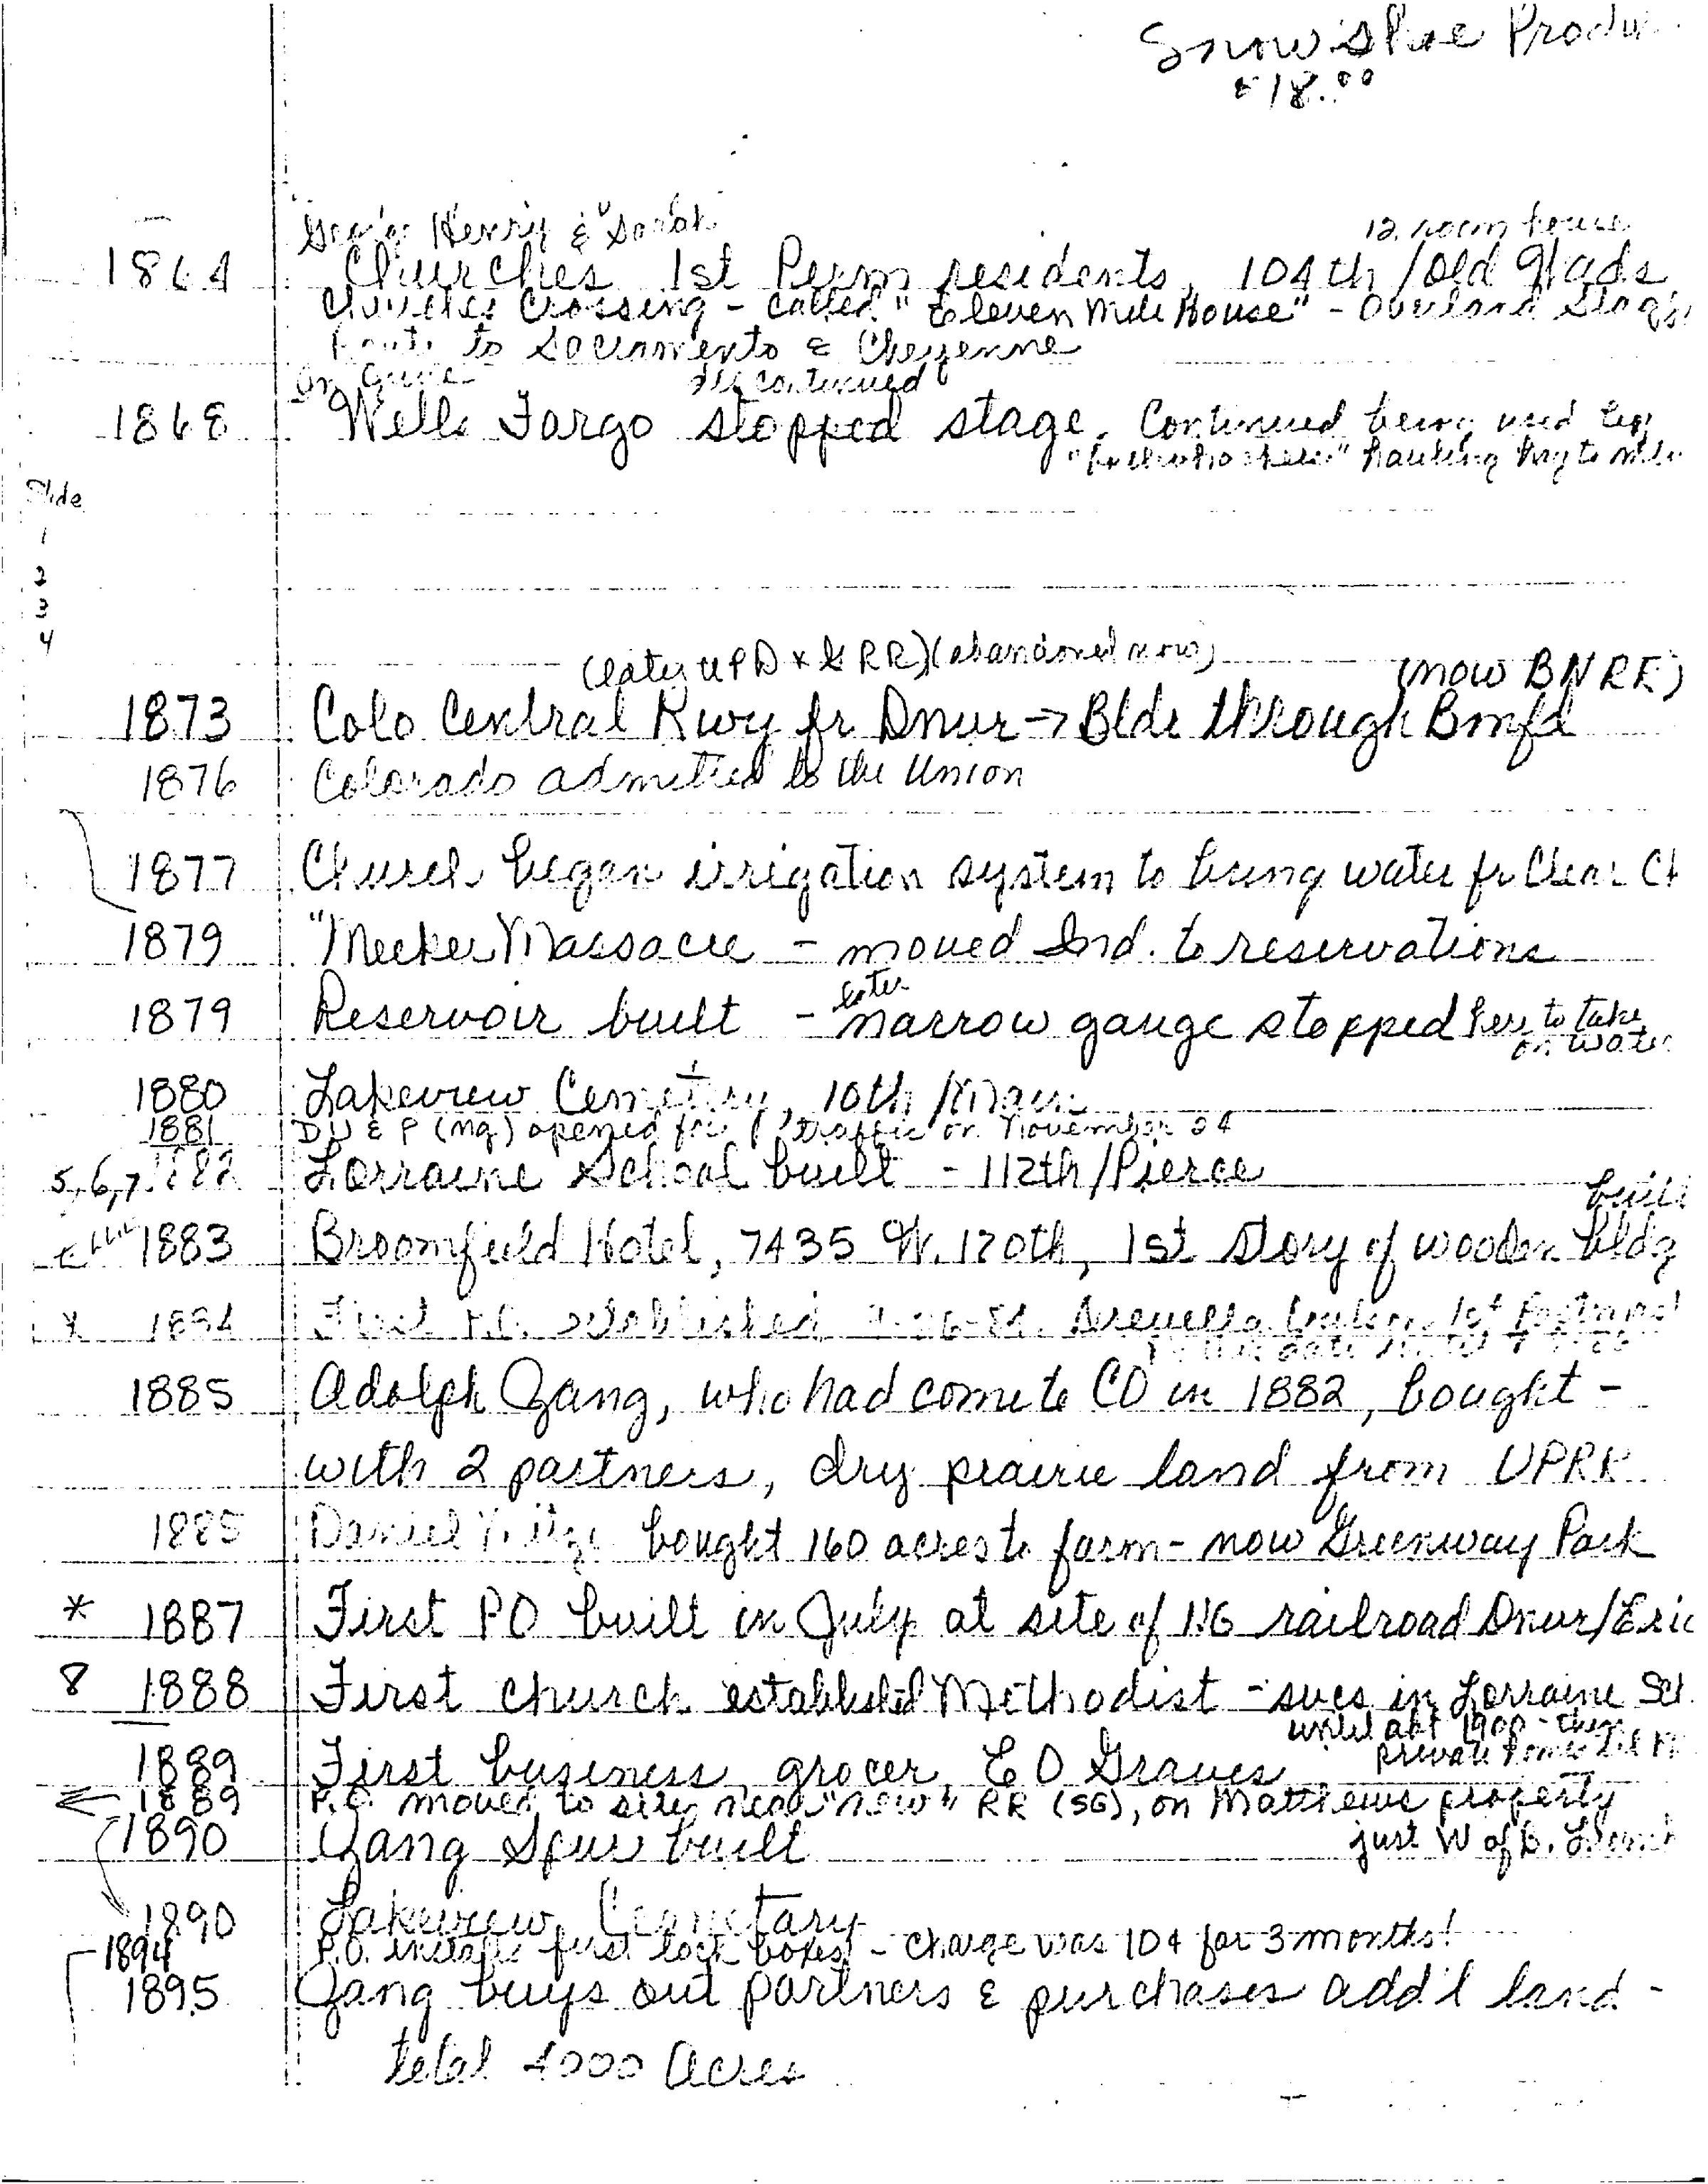 Snowshoe Produ
$18.00
George Henry & Sarah
12 room house
1864 Churches 1st Perm residents, 104th/Old Wads
Churches Crossing - called "Eleven Mile House" - Overland Stage
Route to Sacramento & Cheyenne
discontinued
1868 Wells Fargo stopped stage. Continued being used by
hauling hay to
Slide
1
2
3
4
(later UPD & G RR) (abandoned now) (now BNRR)
1873 Colo Central Rwy fr Dnvr → Bldr through Bmfd
1876 Colorado admitted to the Union
1877 Church began irrigation system to bring water fr Clear Ck
1879 "Meeker Massacre - moved Ind. to reservations
later
1879 Reservoir built - narrow gauge stopped here to take
on water
1880 Lakeview Cemetery, 10th/Main
1881 (ng) opened for traffic on November 24
5,6,7 1882 Lorraine School built - 112th/Pierce
built
1883 Broomfield Hotel, 7435 W. 120th, 1st story of wooden bldg
1884 First P.O. established 1st
1885 Adolph Zang, who had come to CO in 1882, bought -
with 2 partners, dry prairie land from UPRR
1885 Daniel bought 160 acres to farm - now Greenway Park
* 1887 First PO built in July at site of NG railroad Dnvr/Erie
8 1888 First church established Methodist - svcs in Lorraine Sch
until abt 1900 - then
private homes til
1889 First business, grocer, E O Graves
← 1889 P.O. moved to site near "new" RR (SG), on Matthews property
just W of
1890 Zang Spur built
1890 Lakeview Cemetary
1894 P.O. installs first lock boxes - charge was 10¢ for 3 months!
1895 Zang buys out partners & purchases add'l land -
total 4000 acres